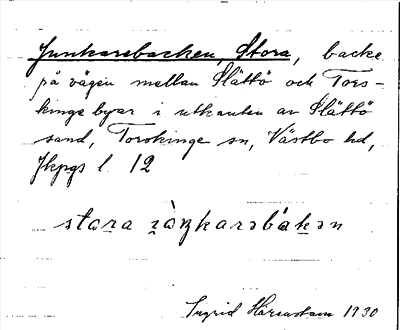 Junkarebacken, Stora, backe
på vägen mellan Slättö och Tors-
kinge byar i utkanten av Slättö
sand, Torskinge sn, Västbo hd,
Jkpgs l. 12
stora jòŋkarəbákən
Ingrid 1930